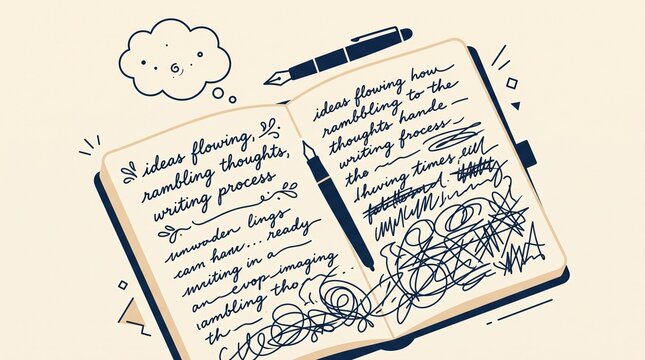 ideas flowing,
rambling thoughts,
writing process
unwaden lings
can hanr... ready
writing in a
an evop imaging
ambling tho
th
ideas flowing how
rambbling to the
thoughts hande
writing frocess
the
times